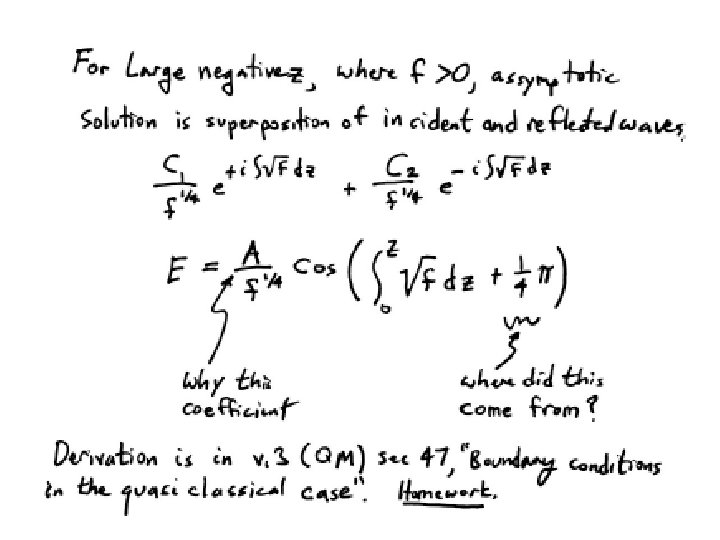 For Large negative z, where f >0, assymptotic
Solution is superposition of incident and reflected waves,
C₁/f^{1/4} e^{+i∫√f dz} + C₂/f^{1/4} e^{-i∫√f dz}
E = A/f^{1/4} cos (∫₀^z √f dz + 1/4 π)
why this where did this
coefficient come from?
Derivation is in v.3 (QM) sec 47, "Boundary conditions
in the quasi classical case". Homework.